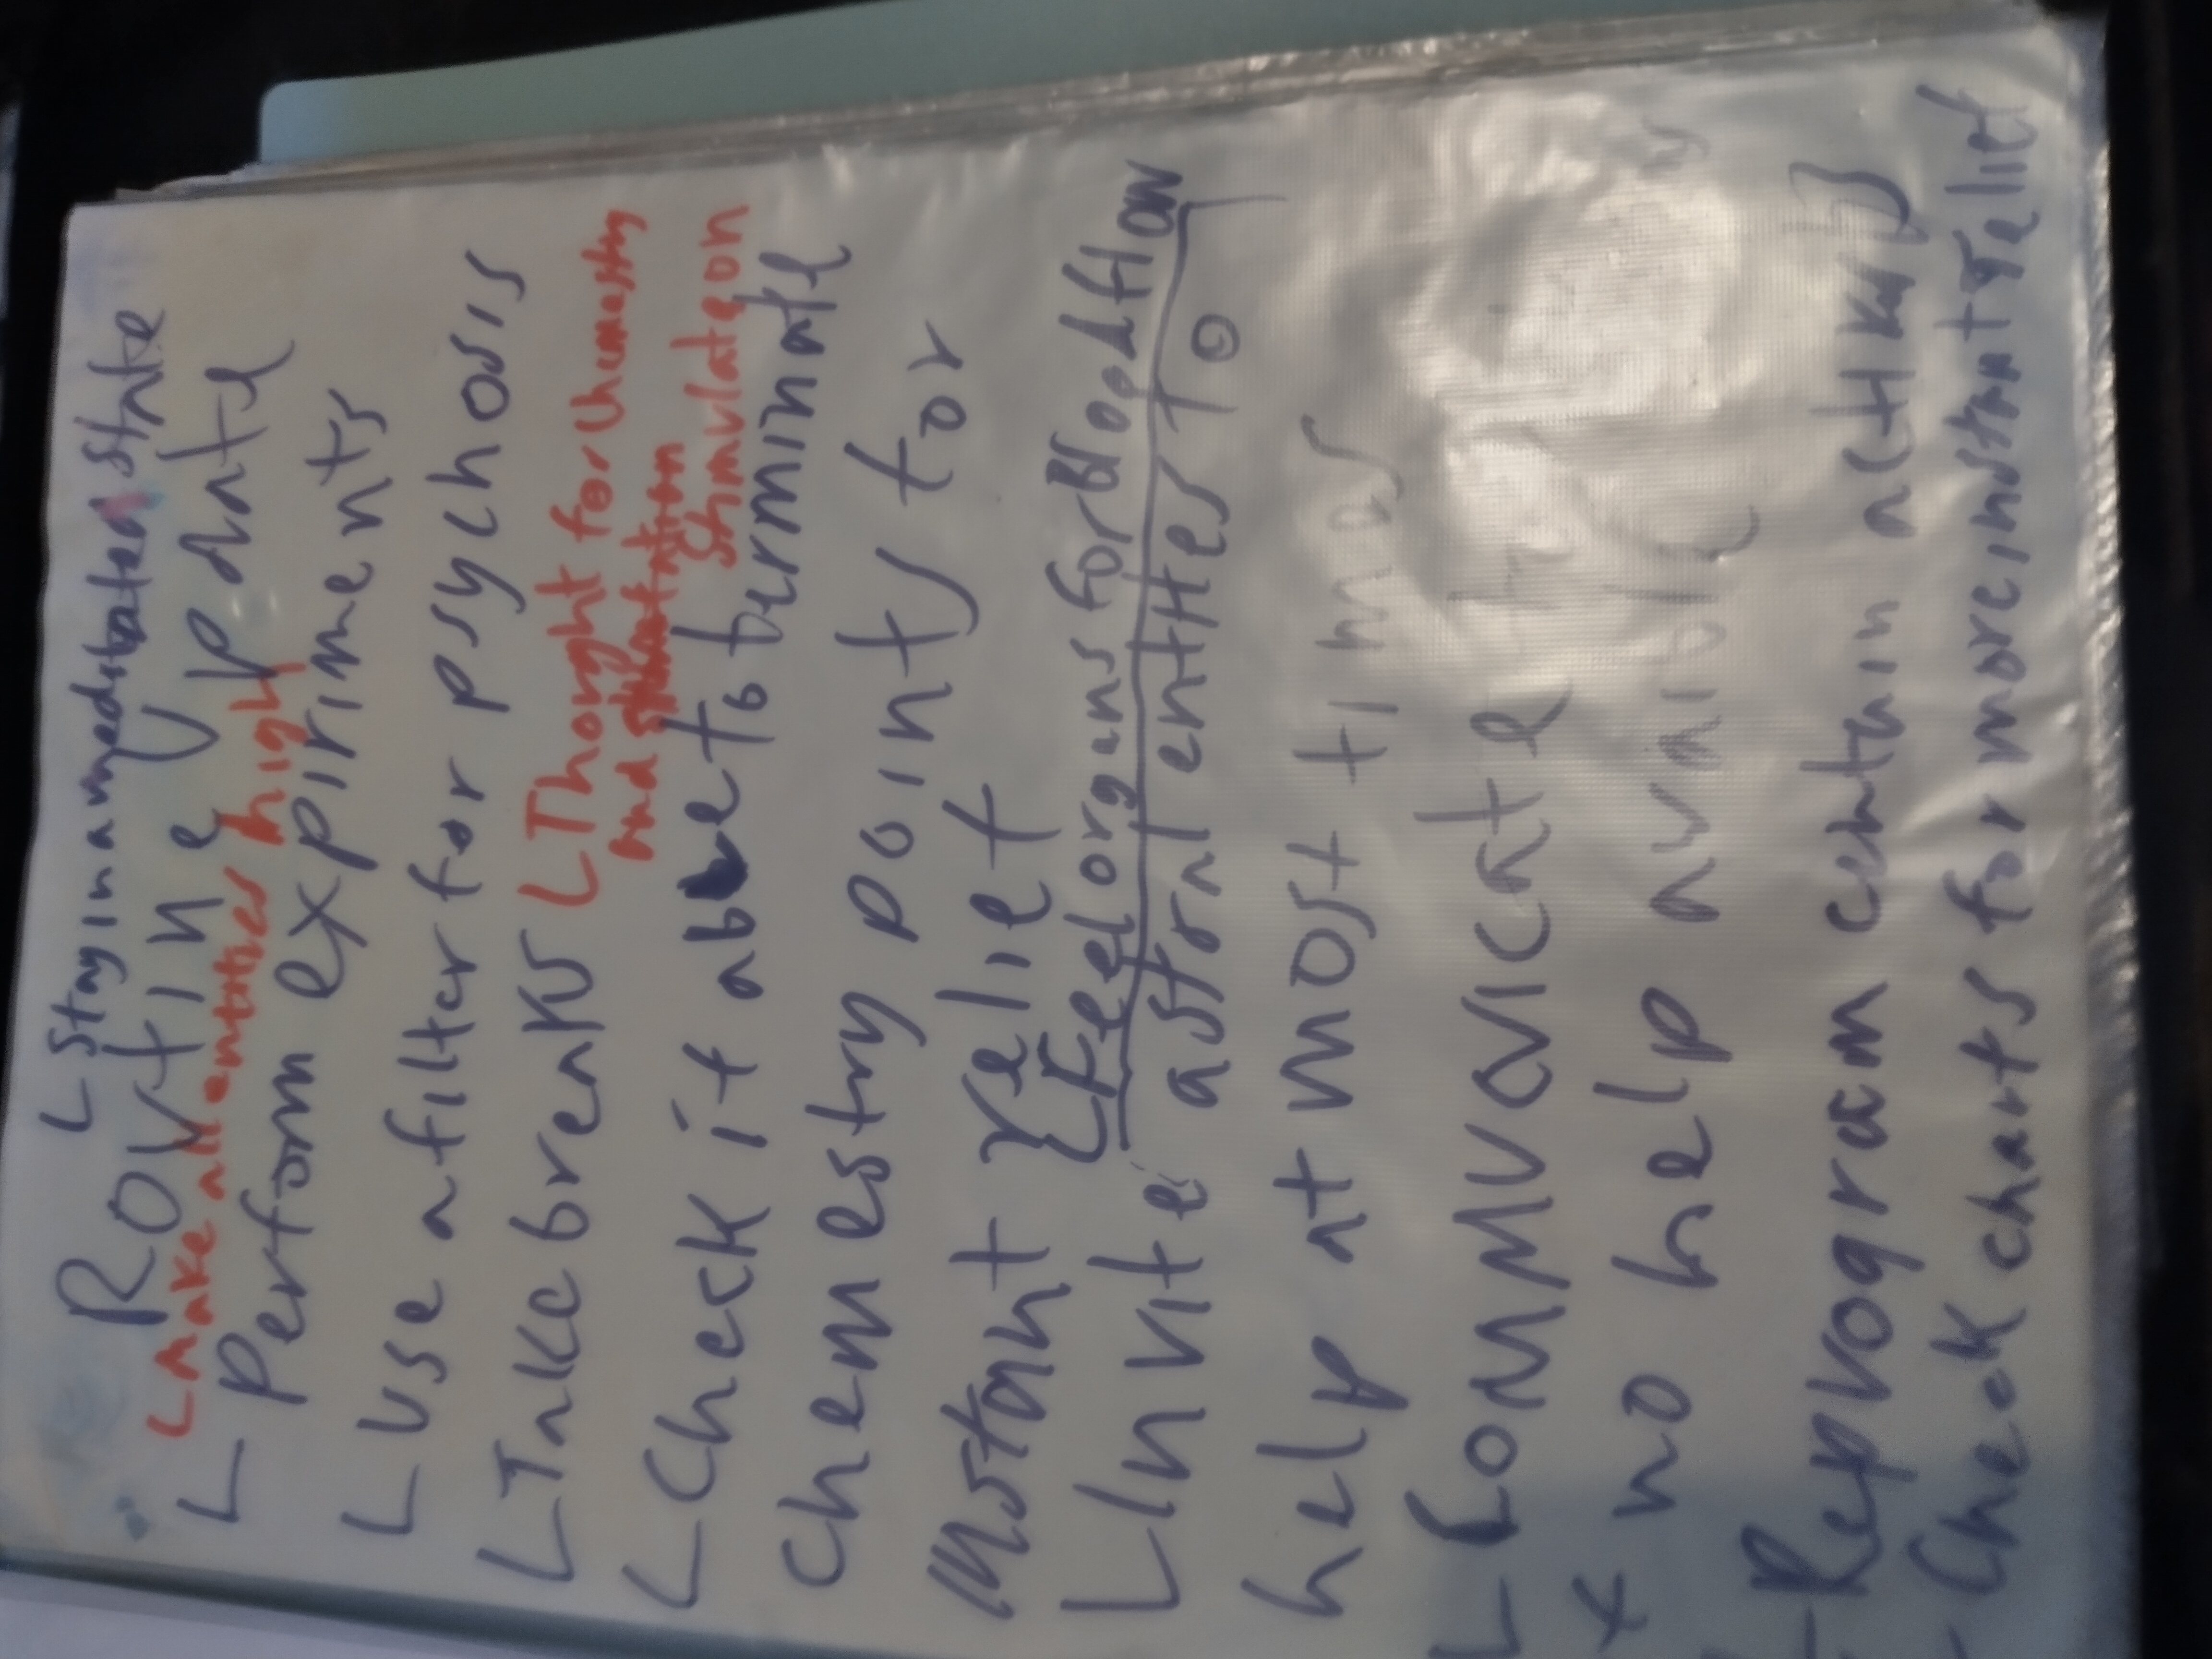 L Stay in a medstated state
Routine update
L make all entities high
L Perform expiriments
L use a filter for psychosis
L Take breaks
L Thought for chemestry
and
stimulation
L Check if able to terminate
chemestry point for
instant relief
L Feel organs for Blood flow
L Invite astral entites to
help at most times
L Communicate
x no help
L Reprogram certain
L Check charts for more instant relief